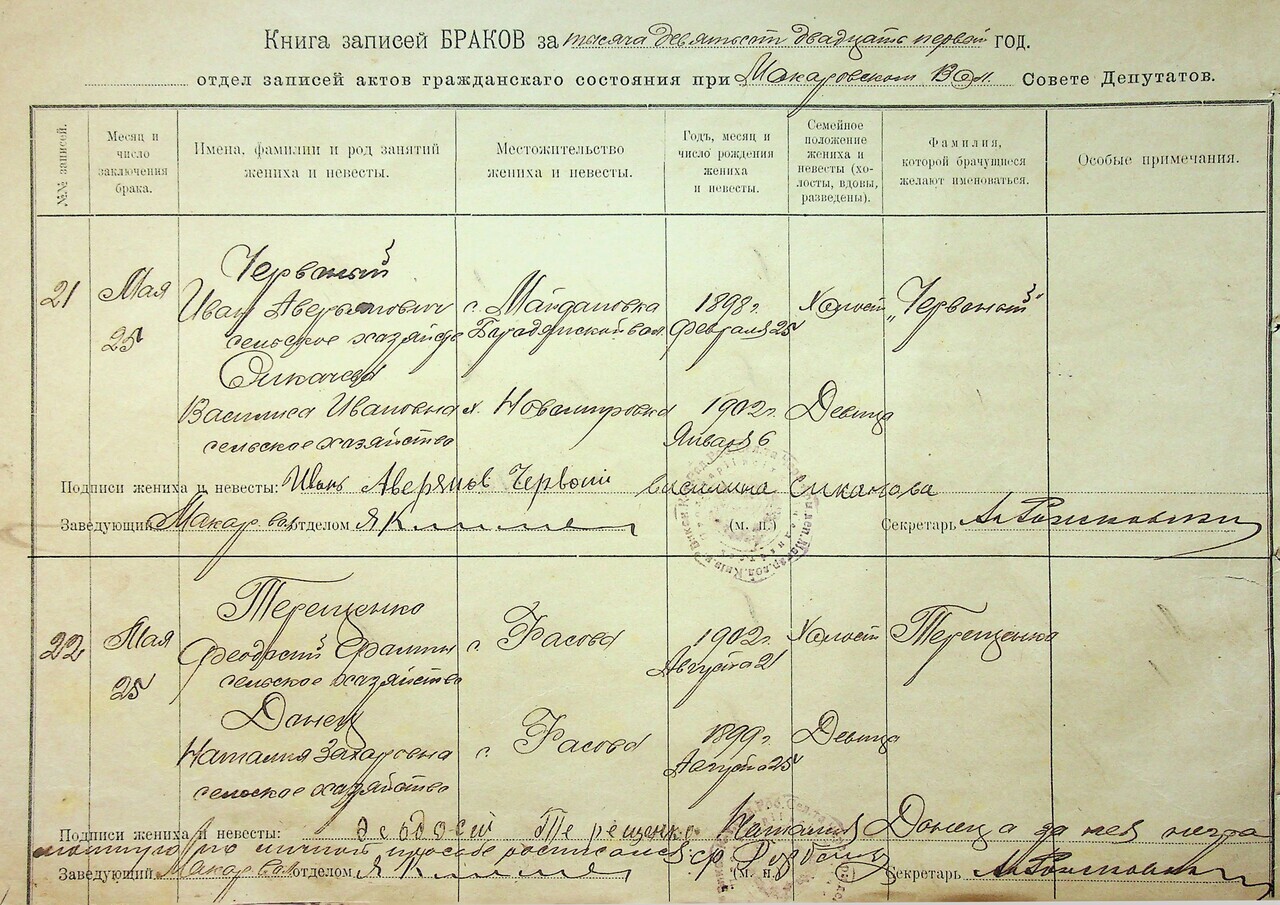 Книга записей БРАКОВ за тысяча девятьсот двадцать первый год.
отдел записей актов гражданскаго состояния при Макаровском Вол. Совете Депутатов.
№№ записей.
Месяц и число заключения брака.
Имена, фамилии и род занятий жениха и невесты.
Местожительство жениха и невесты.
Годъ, месяц и число рождения жениха и невесты.
Семейное положение жениха и невесты (холосты, вдовы, разведены).
Фамилия, которой брачущиеся желают именоваться.
Особые примечания.
Червоный
21 Мая Иван Аверьянович с. Майдановка 1898 г. Холост „Червоный"
25 сельское хазяйс Бородянской вол. Февраля 25
Василиса Ивановна х. Новомировка 1902 г. Девица
сельское хазяйство Января 6
Подписи жениха и невесты: Иван Аверянов Червоний василина
Заведующий Макар вол отделом (м. п.) Секретарь
Терещенко
22 Мая Феодосий с. Фасова 1902 г. Холост Терещенко
25 сельское хазяйство Августа 21
Донец
Наталия Захаровна с. Фасова 1899 г. Девица
сельское хазяйство Августа 25
Подписи жениха и невесты: Терещенко Наталия Донец а за нея негра
мотную по личной просьбе росписался
Заведующий Макар вол отделом (м. п.) Секретарь